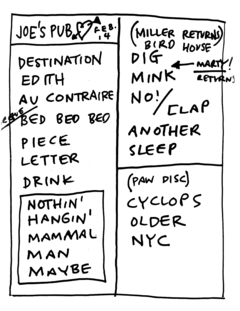 JOE'S PUB
FEB.
14
DESTINATION
EDITH
AU CONTRAIRE
BED BED BED
PIECE
LETTER
DRINK
NOTHIN'
HANGIN'
MAMMAL
MAN
MAYBE
(MILLER RETURNS)
BIRD HOUSE
DIG
MARTY!
RETURNS
MINK
NO!/
CLAP
ANOTHER
SLEEP
(PAW DISC)
CYCLOPS
OLDER
NYC